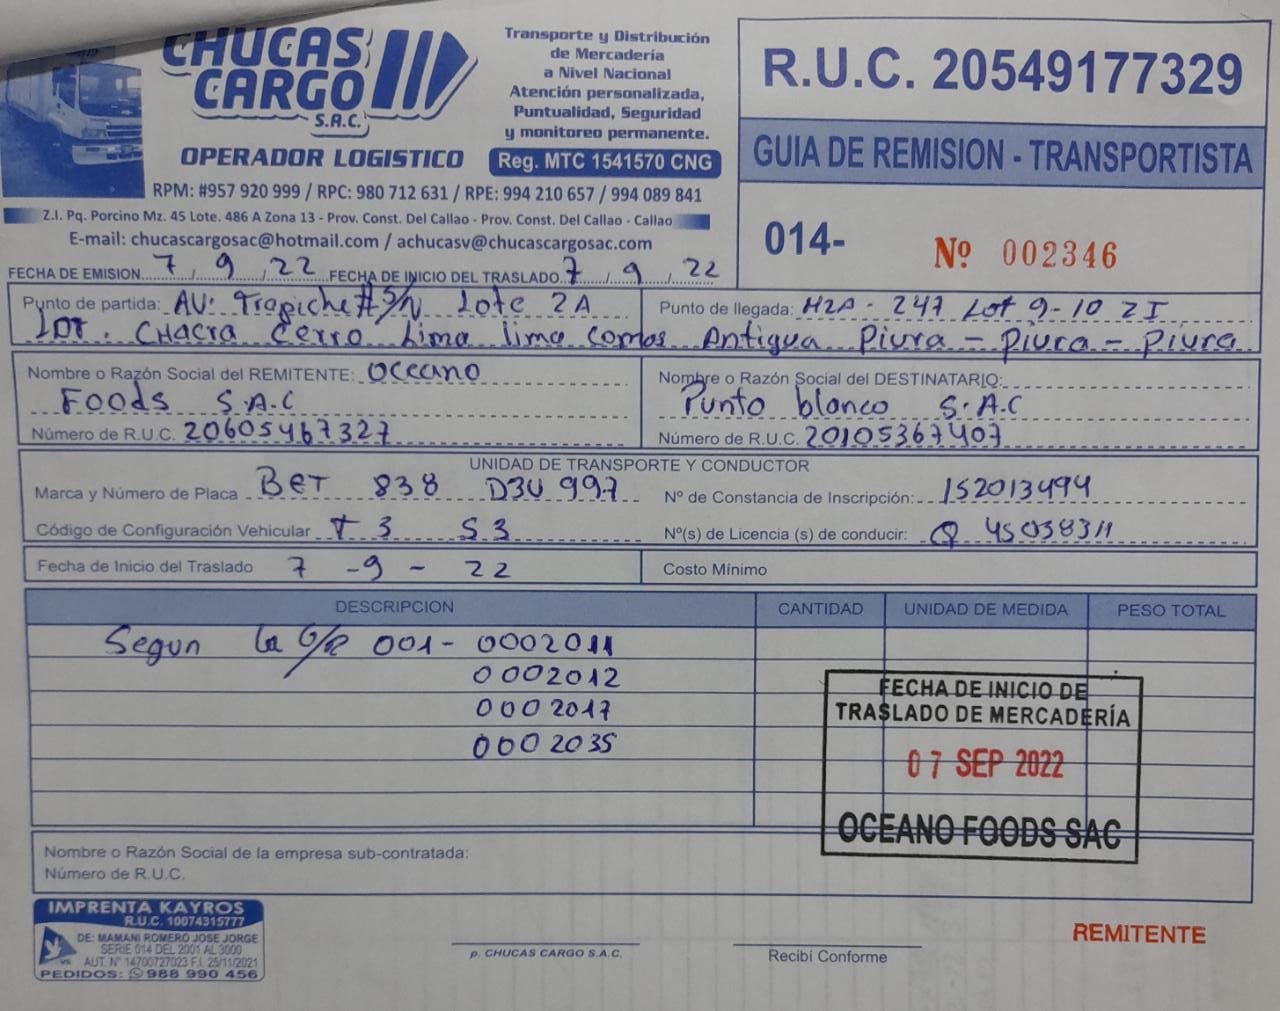 CHUCAS
CARGO
S.A.C.
OPERADOR LOGISTICO
Transporte y Distribución
de Mercadería
a Nivel Nacional
Atención personalizada,
Puntualidad, Seguridad
y monitoreo permanente.
Reg. MTC 1541570 CNG
RPM: #957 920 999 / RPC: 980 712 631 / RPE: 994 210 657 / 994 089 841
Z.I. Pq. Porcino Mz. 45 Lote. 486 A Zona 13 - Prov. Const. Del Callao - Prov. Const. Del Callao - Callao
E-mail: chucascargosac@hotmail.com / achucasv@chucascargosac.com
R.U.C. 20549177329
GUIA DE REMISION - TRANSPORTISTA
014- Nº 002346
FECHA DE EMISION 7 / 9 / 22 FECHA DE INICIO DEL TRASLADO 7 / 9 / 22
Punto de partida: AV: Trapiche # S/N Lote 2A
Lot. Chacra Cerro Lima Lima Comas
Punto de llegada: MZA - 247 Lot 9-10 ZI
Antigua Piura - Piura - Piura
Nombre o Razón Social del REMITENTE: Oceano
Foods S.A.C
Número de R.U.C. 20605467327
Nombre o Razón Social del DESTINATARIO:
Punto blanco S.A.C
Número de R.U.C. 20105367407
UNIDAD DE TRANSPORTE Y CONDUCTOR
Marca y Número de Placa BET 838 D3U 997
Nº de Constancia de Inscripción: 152013494
Código de Configuración Vehicular T3 S3
Nº(s) de Licencia (s) de conducir: Q 45038311
Fecha de Inicio del Traslado 7 - 9 - 22
Costo Mínimo
DESCRIPCION CANTIDAD UNIDAD DE MEDIDA PESO TOTAL
Segun la G/R 001- 0002011
0002012
0002017
0002035
FECHA DE INICIO DE
TRASLADO DE MERCADERÍA
07 SEP 2022
OCEANO FOODS SAC
Nombre o Razón Social de la empresa sub-contratada:
Número de R.U.C.
IMPRENTA KAYROS
R.U.C. 10074315777
DE: MAMANI ROMERO JOSE JORGE
SERIE 014 DEL 2001 AL 3000
AUT. Nº 14700727023 F.I. 25/11/2021
PEDIDOS: 988 990 456
p. CHUCAS CARGO S.A.C.
Recibí Conforme
REMITENTE